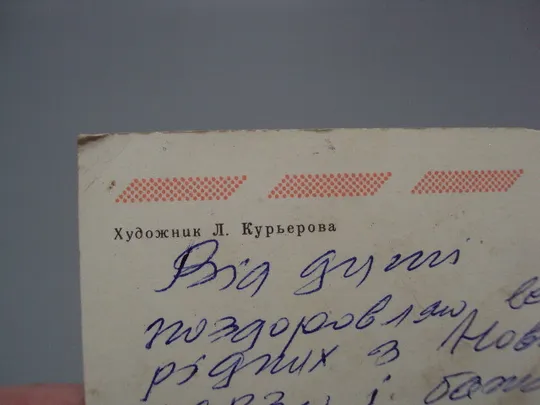 Художник Л. Курьерова
Від душі
поздоровляю
рідних з Нов
і бажа